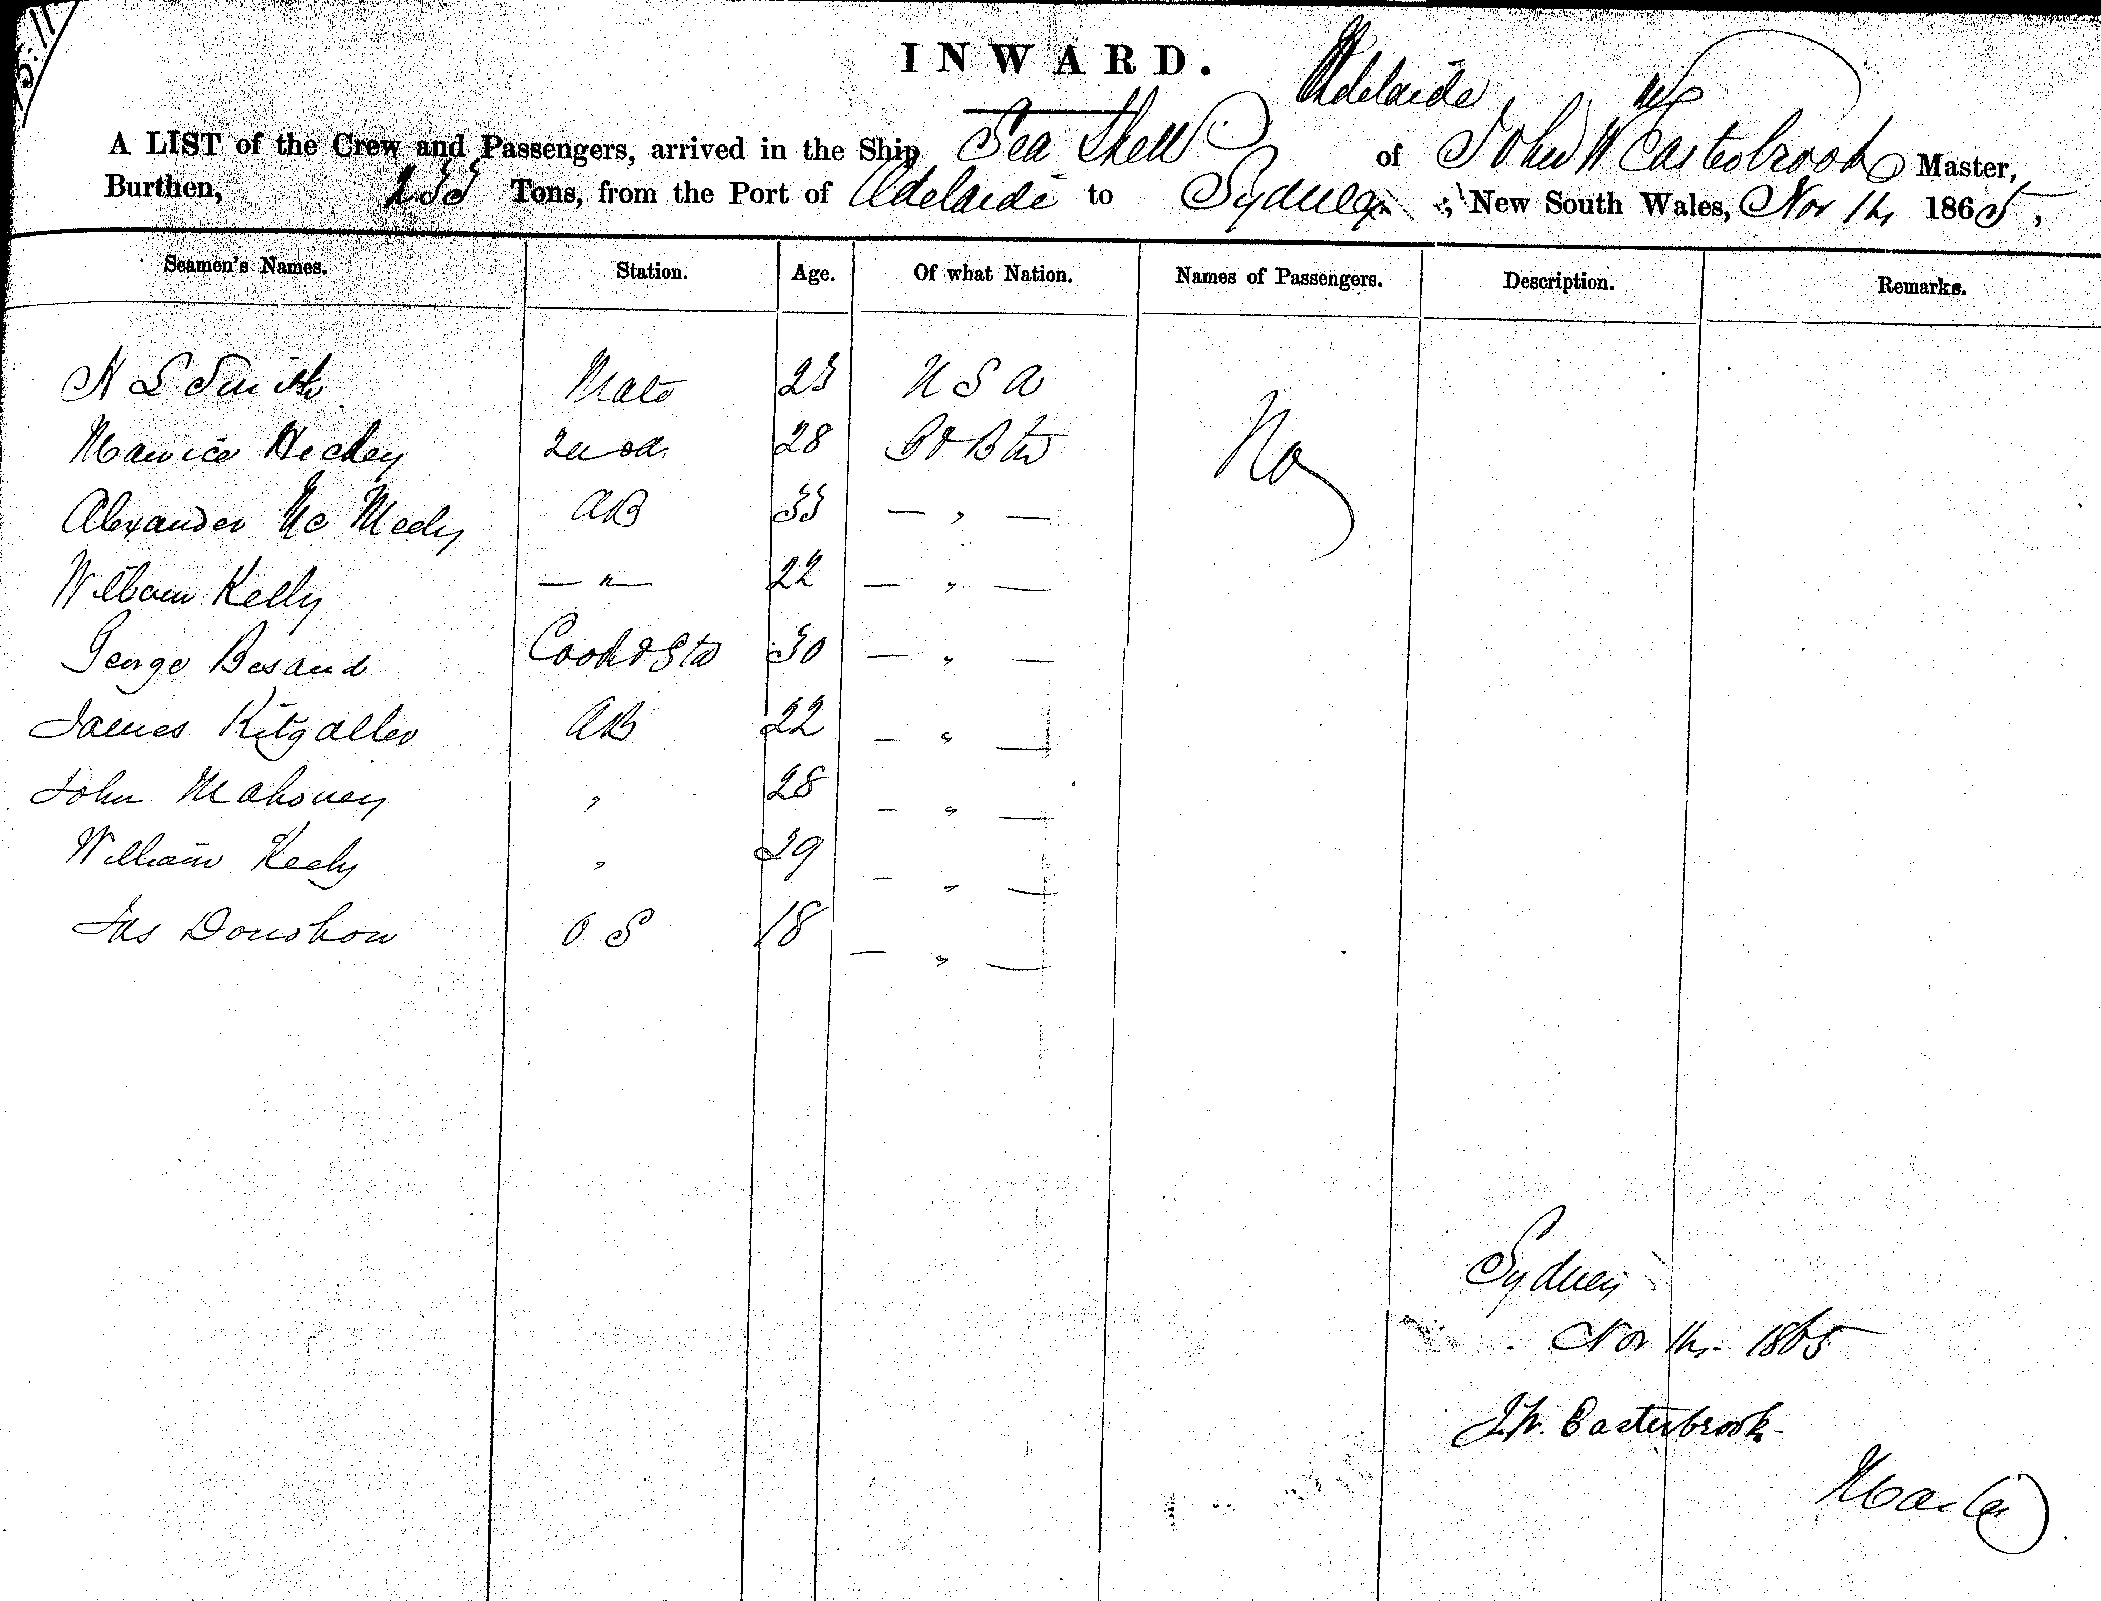 INWARD.
A LIST of the Crew and Passengers, arrived in the Ship Sea Shell of Adelaide John W Easterbrook Master,
Burthen, 233 Tons, from the Port of Adelaide to Sydney, New South Wales, Nov 1865,
Seamen's Names. Station. Age. Of what Nation. Names of Passengers. Description. Remarks.
Smith Mate 23 U S A
Maurice Hickey 2nd 28 No
Alexander Mc Meely AB 33 — " —
William Kelly — " — 22 — " —
George Besand Cook & Std 30 — " —
James AB 22 — " —
John Mahoney " 28 — " —
William Keely " 29 — " —
Jas Donohow O S 18 — " —
Sydney
Nov 1865
J.W. Easterbrook
Master